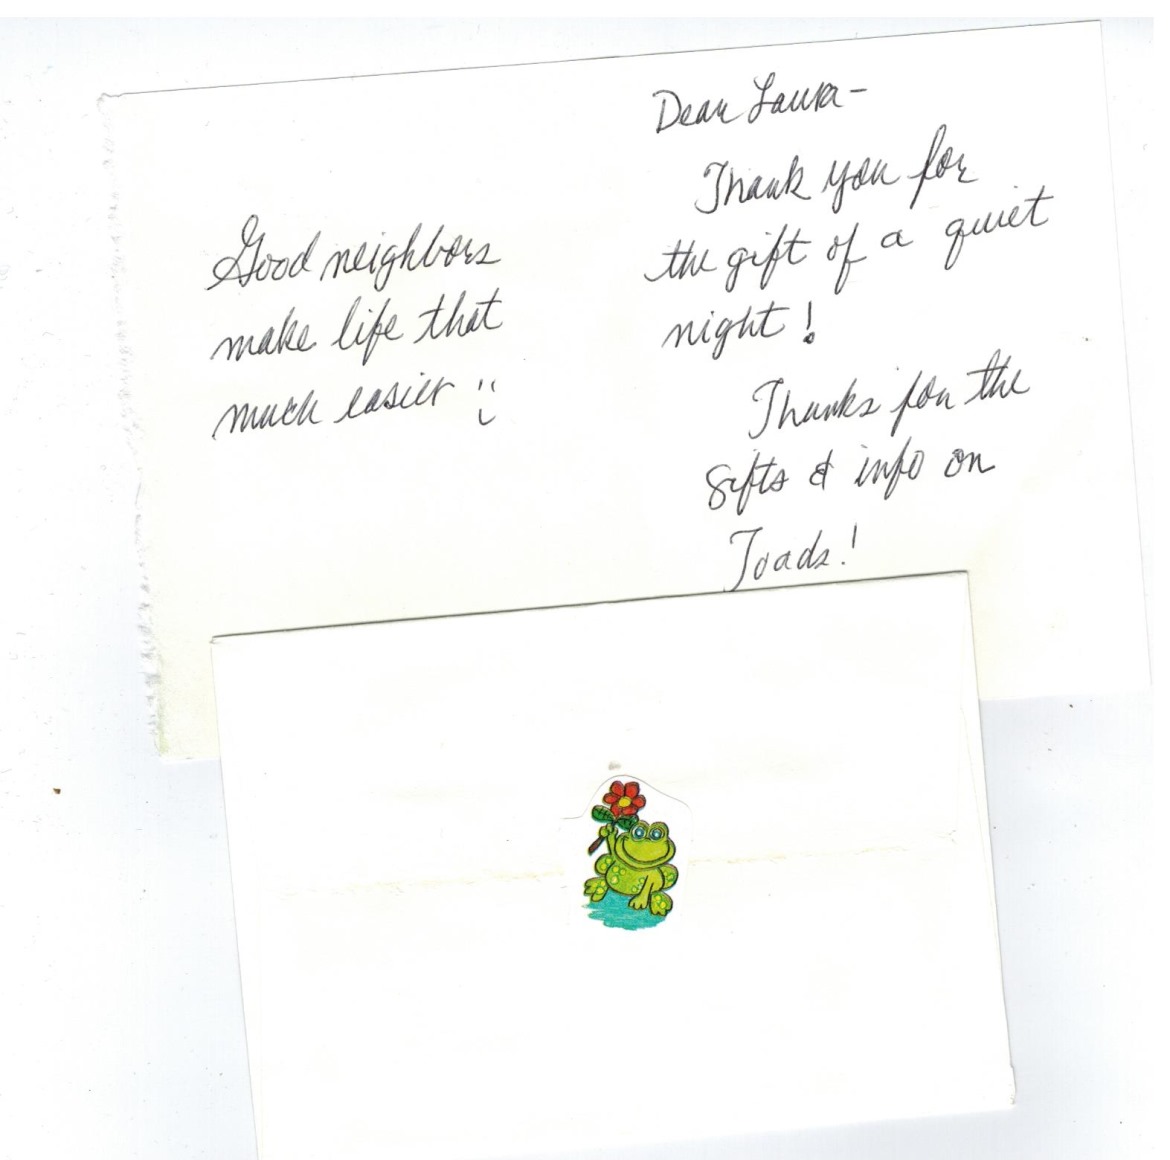 Good neighbors
make life that
much easier :)
Dear Laura-
Thank you for
the gift of a quiet
night!
Thanks for the
gifts & info on
Toads!